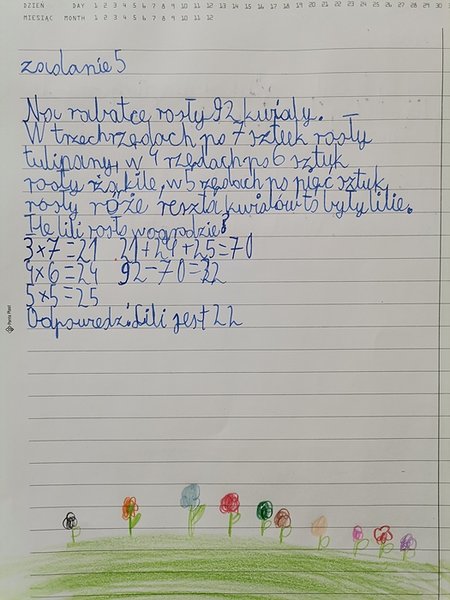 DZIEŃ DAY 1 2 3 4 5 6 7 8 9 10 11 12 13 14 15 16 17 18 19 20 21 22 23 24 25 26 27 28 29 30
MIESIĄC MONTH 1 2 3 4 5 6 7 8 9 10 11 12
zadanie 5
Na rabatce rosły 92 kwiaty.
W trzech rzędach po 7 sztuk rosły
tulipany, w 4 rzędach po 6 sztuk
rosły żąkile, w 5 rzędach po pięć sztuk
rosły róże reszta kwiatów to były lilie.
Ile lili rosło w ogrodzie?
3×7=21 21+24+25=70
4×6=24 92-70=22
5×5=25
Odpowiedź: Lili jest 22